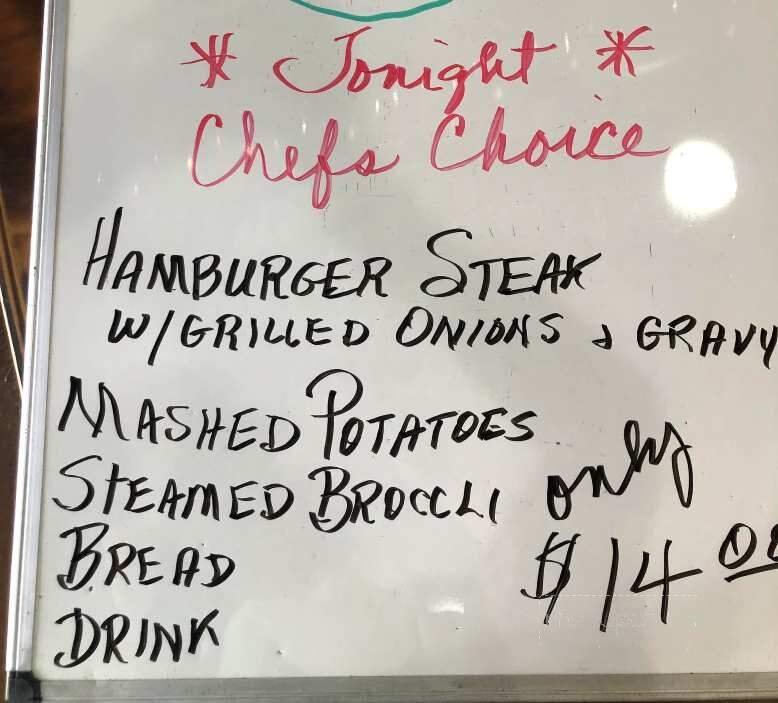 * Tonight *
Chefs Choice
HAMBURGER STEAK
W/GRILLED ONIONS & GRAVY
MASHED POTATOES
STEAMED BROCCLI only
BREAD $14.00
DRINK